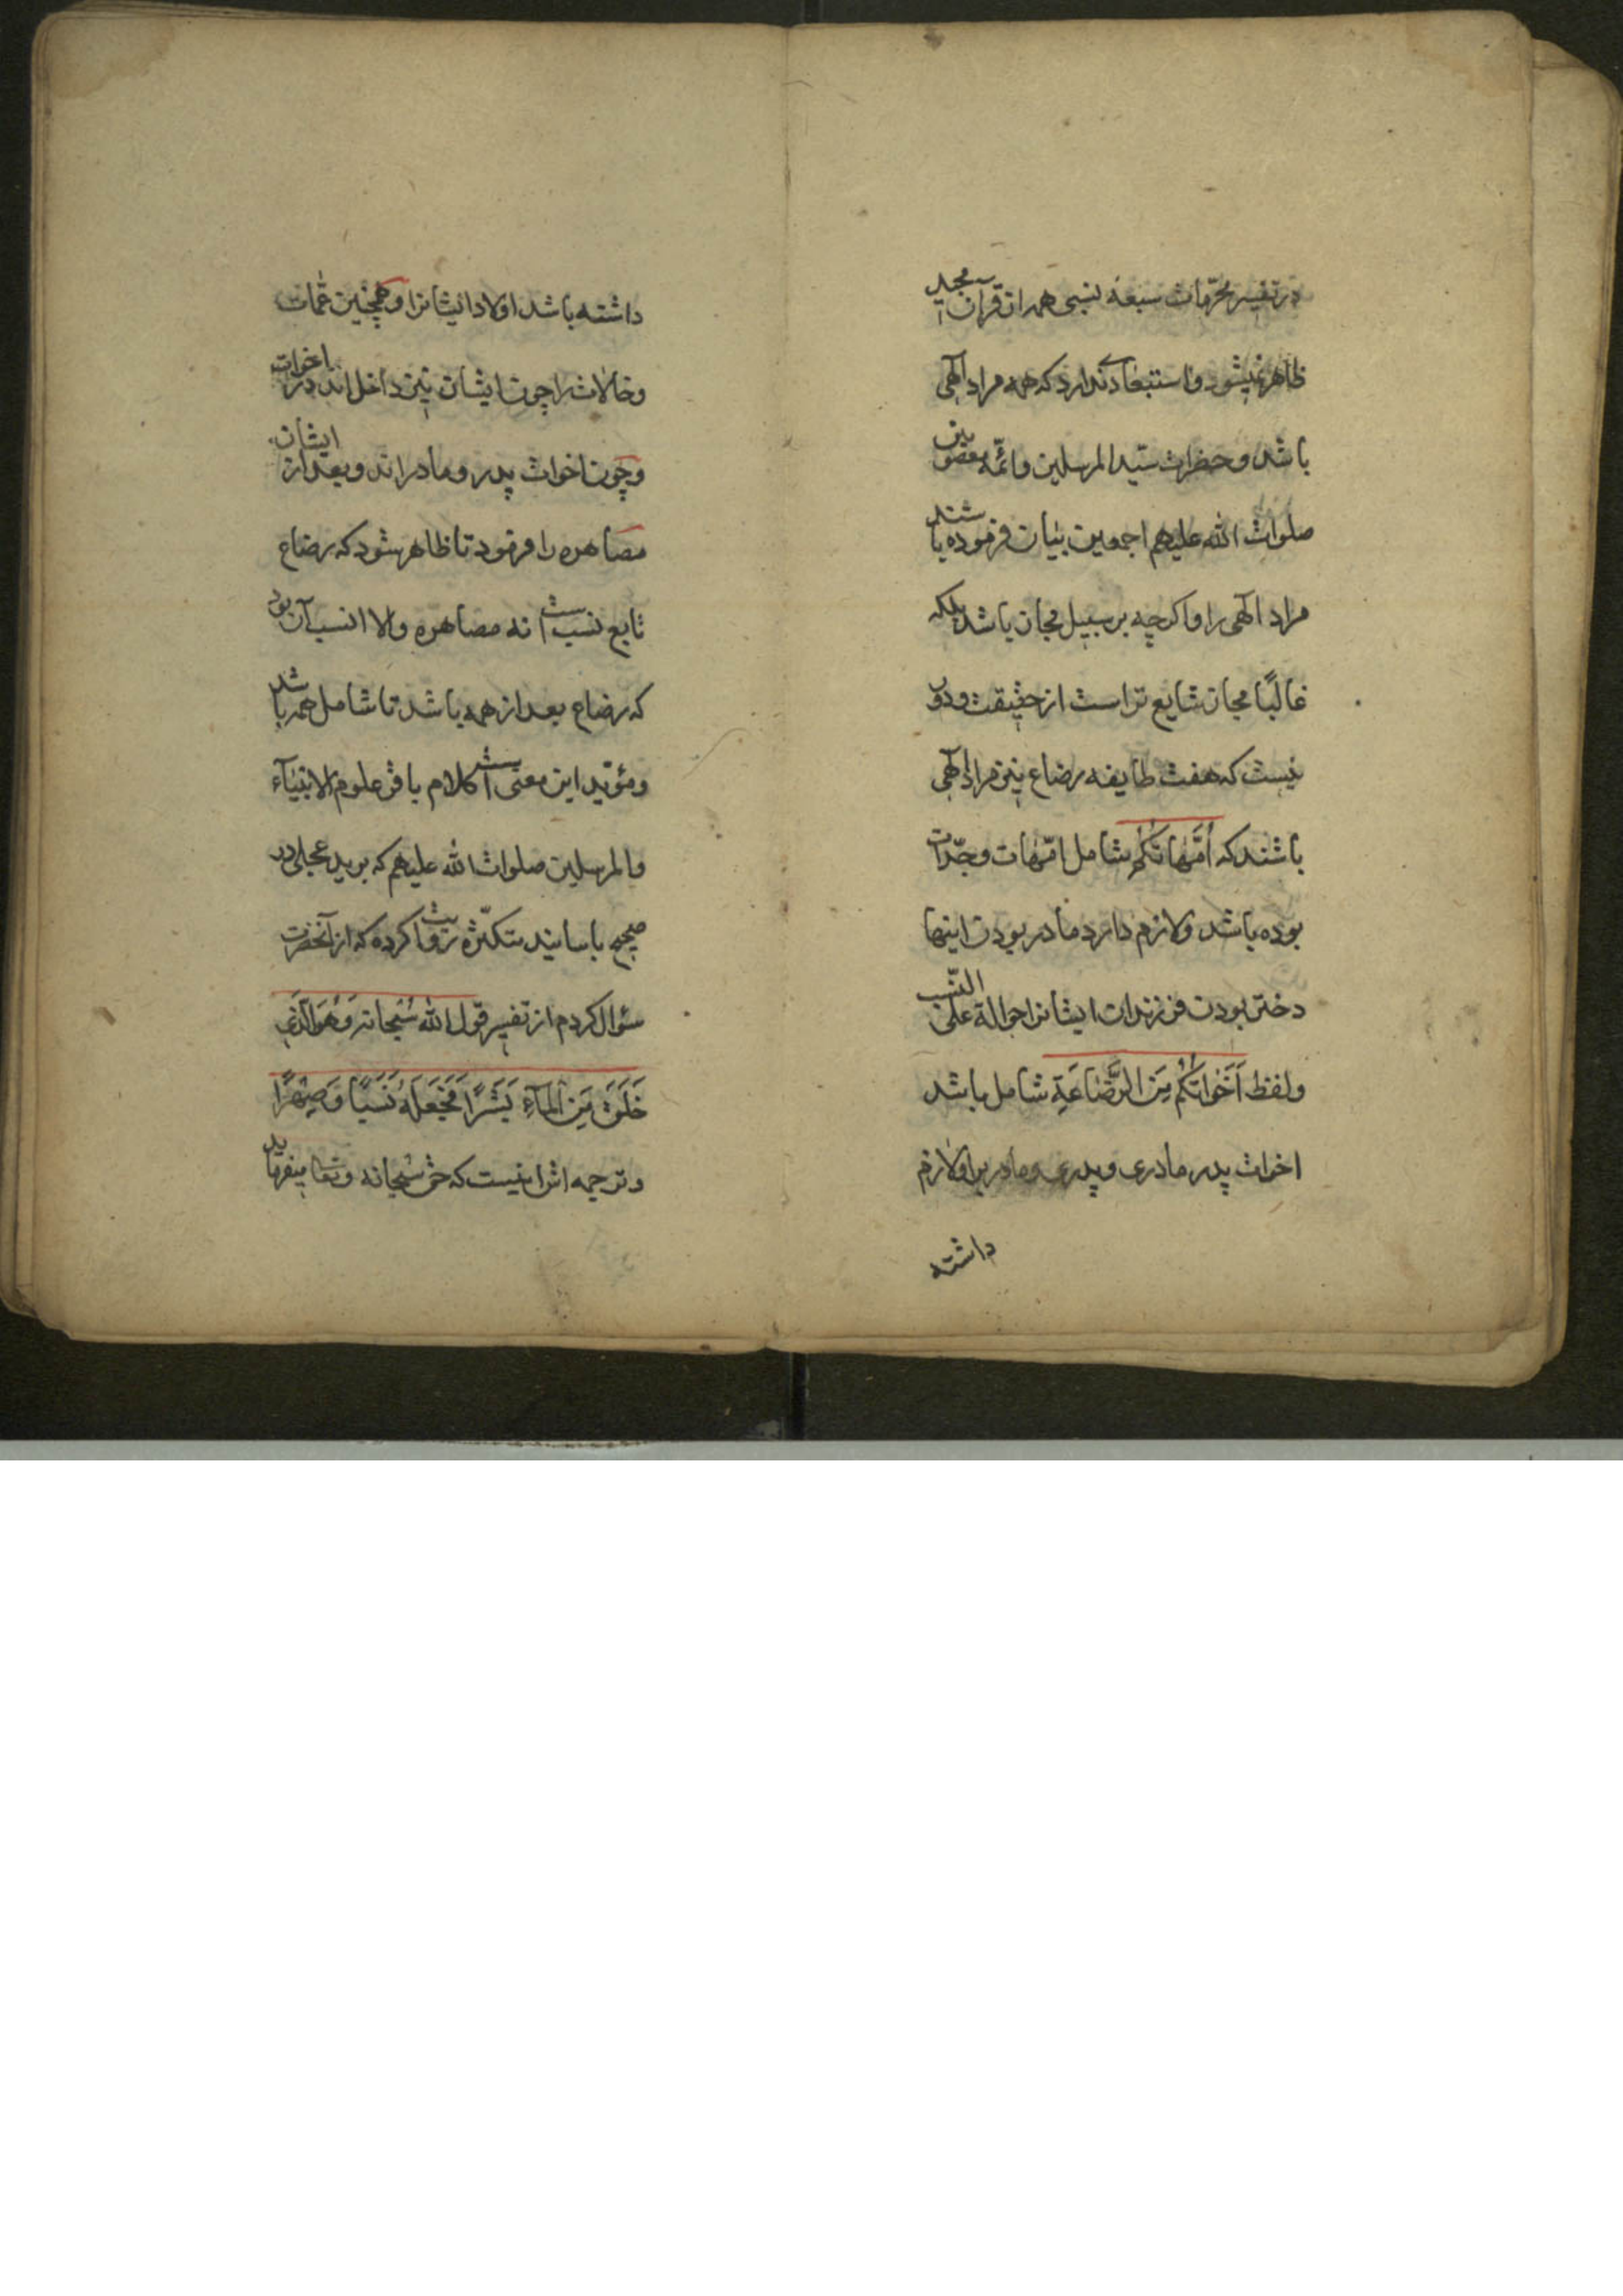 در تفسیر محرّمات سبعه نسبی همه از قرآن مجید
ظاهر نمیشود و استبعادی ندارد که همه مراد الٓهی
باشد و حضرات سیّد المرسلین و ائمّه معصومین
صلوات الله علیهم اجمعین بیان فرموده باشند
مراد الٓهی را و اکرچه بر سبیل مجاز باشد بلکه
غالبًا مجاز شایع تر است از حقیقت و دور
نیست که هفت طایفه رضاع نیز مراد الٓهی
باشند که اُمَّهاتُکُم شامل امّهات و جدّات
بوده باشد و لازم دارد مادر بودن اینها
دختر بودن فرزندان ایشانرا حوالة علی النّسب
و لفظ اَخَواتُکُم مِنَ الرَّضاعَةِ شامل باشد
اخوات پدر مادری و پدری و مادریرا و لازم
داشته
داشته باشد اولاد ایشانرا و همچنین عمّات
و خالات را چون ایشان نیز داخل اند در اخوات
و چون اخوات پدر و مادراند و بعد از ایشان
مصاهره را فرمود تا ظاهر شود که رضاع
تابع نسب است نه مصاهره و الا انسب آن بود
که رضاع بعد از همه باشد تا شامل همه باشد
و مؤیّد این معنی است کلام باقر علوم الانبیآء
و المرسلین صلوات الله علیهم که برید عجلی در
صحیح باسانید متکثّره روایت کرده که از آنحضرت
سؤال کردم از تفسیر قول الله سُبحانه وَ هُوَ الَّذی
خَلَقَ مِنَ المآءِ بَشَرًا فَجَعَلَهُ نَسَبًا وَ صِهْرًا
و ترجمه اش اینست که حق سُبحانه و تعالی میفرماید